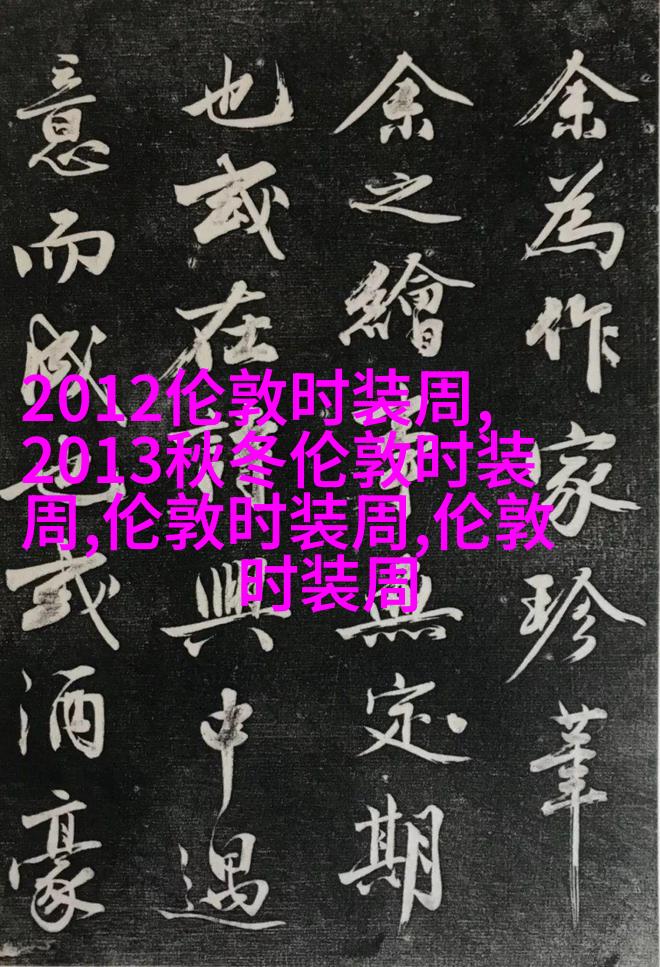 余為作家珍
余之繪無定期
也或在興中遇
意而成也或酒豪
2012伦敦时装周,
2013秋冬伦敦时装
周,伦敦时装周,伦敦
时装周